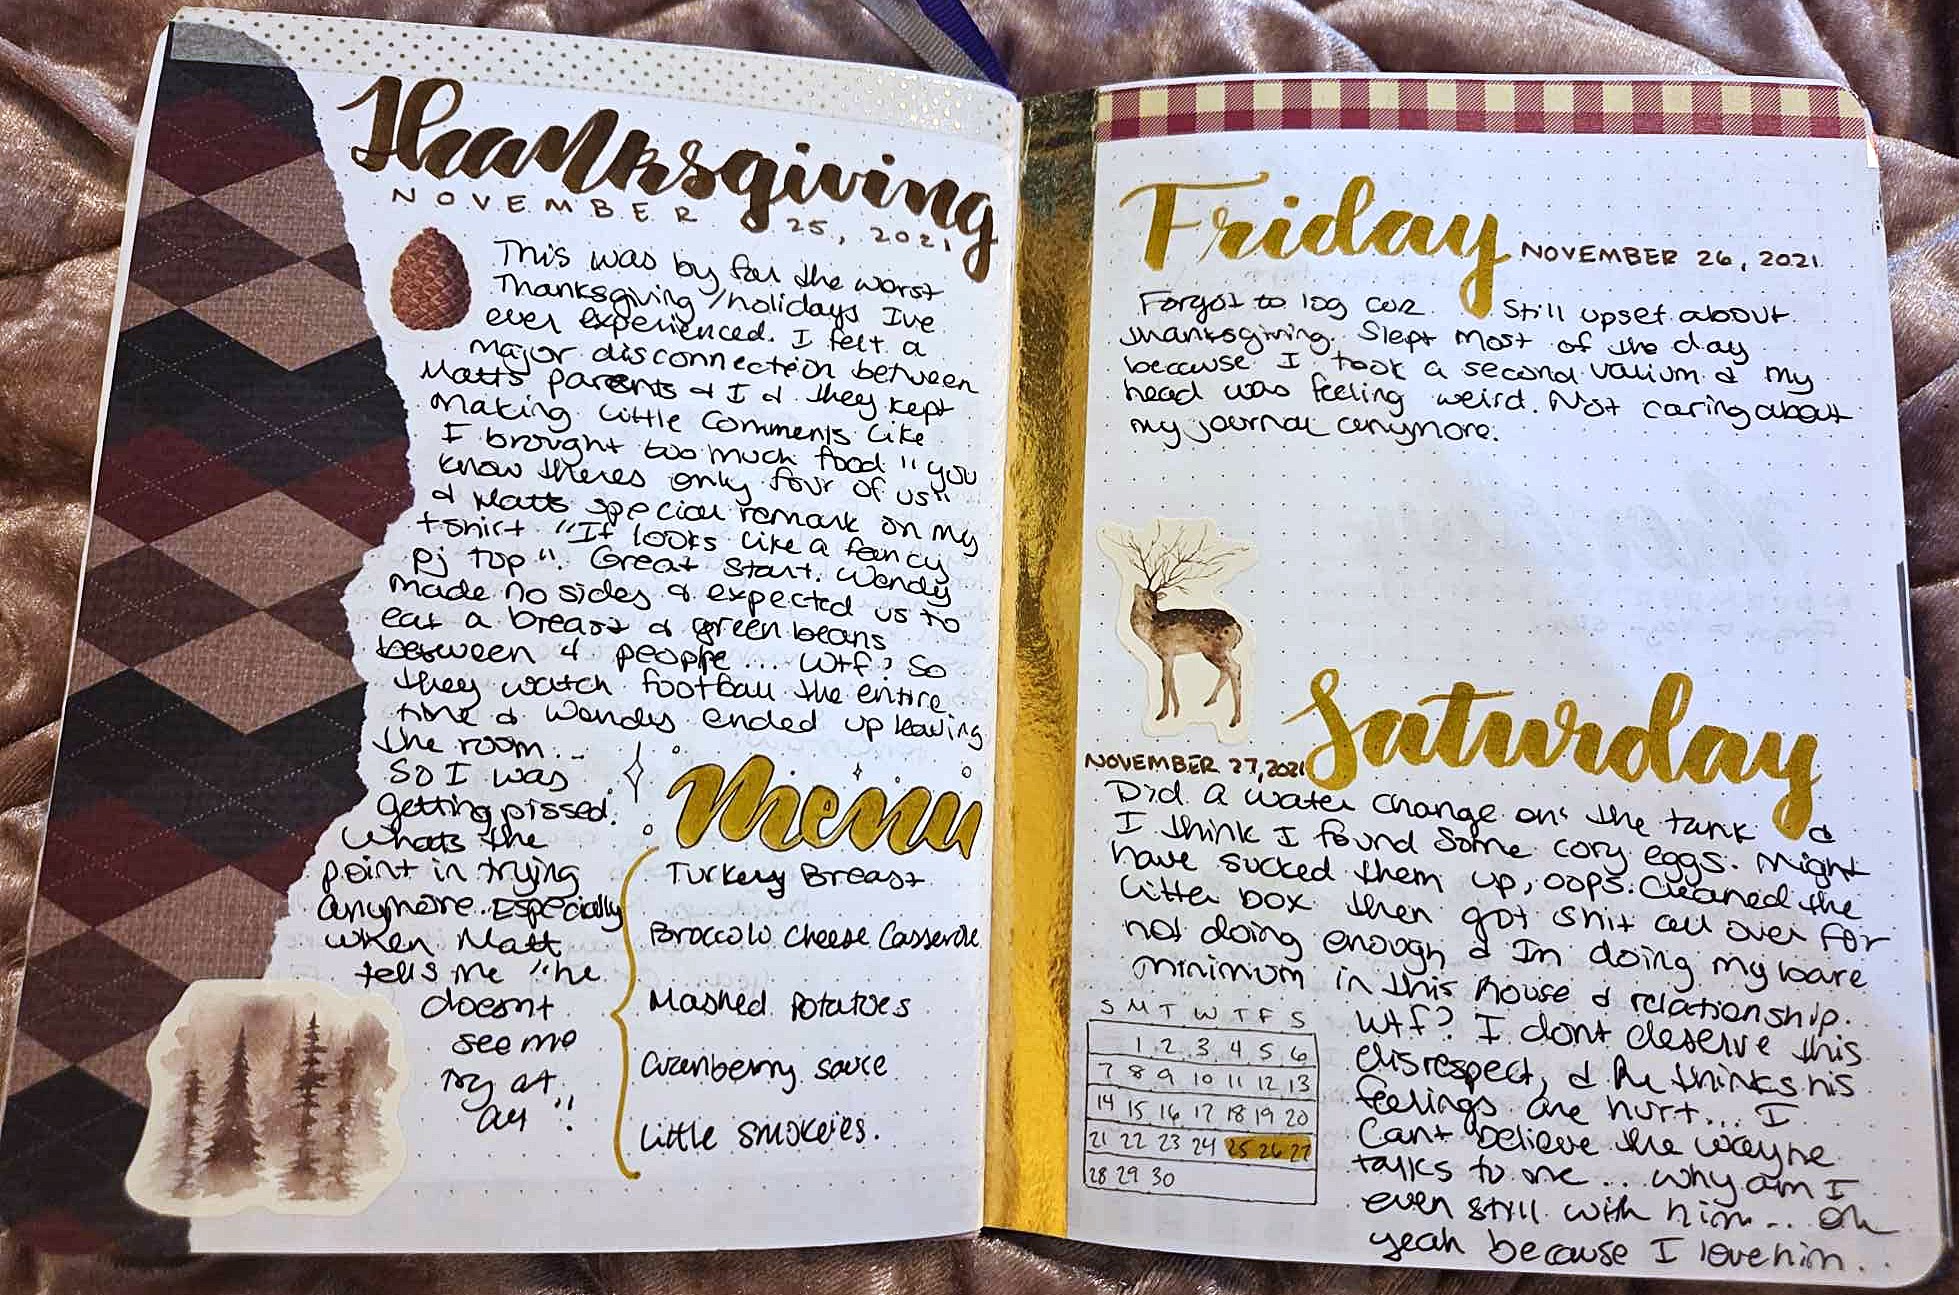 Thanksgiving
NOVEMBER 25, 2021
This was by far the worst
Thanksgiving/holidays Ive
ever experienced. I felt a
major disconnection between
Matts parents & I & they kept
making little comments like
I brought too much food "you
know theres only four of us"
& Matts special remark on my
tshirt "It looks like a fancy
pj top". Great start. Wendy
made no sides & expected us to
eat a breast & green beans
between 4 people... wtf? So
they watch football the entire
time & Wendy ended up leaving
the room...
So I was
getting pissed.
Whats the
point in trying
anymore. Especially
when Matt
tells me "he
doesnt
see me
try at
all"!
Menu
Turkey Breast
Broccolo Cheese Casserole
Mashed Potatoes
Cranberry sauce
Little Smokeies.
Friday NOVEMBER 26, 2021
Forgot to log Still upset about
thanksgiving. Slept most of the day
because I took a second valium & my
head was feeling weird. Not caring about
my journal anymore.
Saturday
NOVEMBER 27, 2021
Did a water change on the tank &
I think I found some cory eggs. Might
have sucked them up, oops. Cleaned the
litter box then got shit all over for
not doing enough & Im doing my bare
minimum in this house & relationship.
wtf? I dont deserve this
disrespect, & he thinks his
feelings are hurt... I
Cant believe the way he
talks to me... why am I
even still with him... oh
yeah because I love him...
S M T W T F S
1 2 3 4 5 6
7 8 9 10 11 12 13
14 15 16 17 18 19 20
21 22 23 24 25 26 27
28 29 30